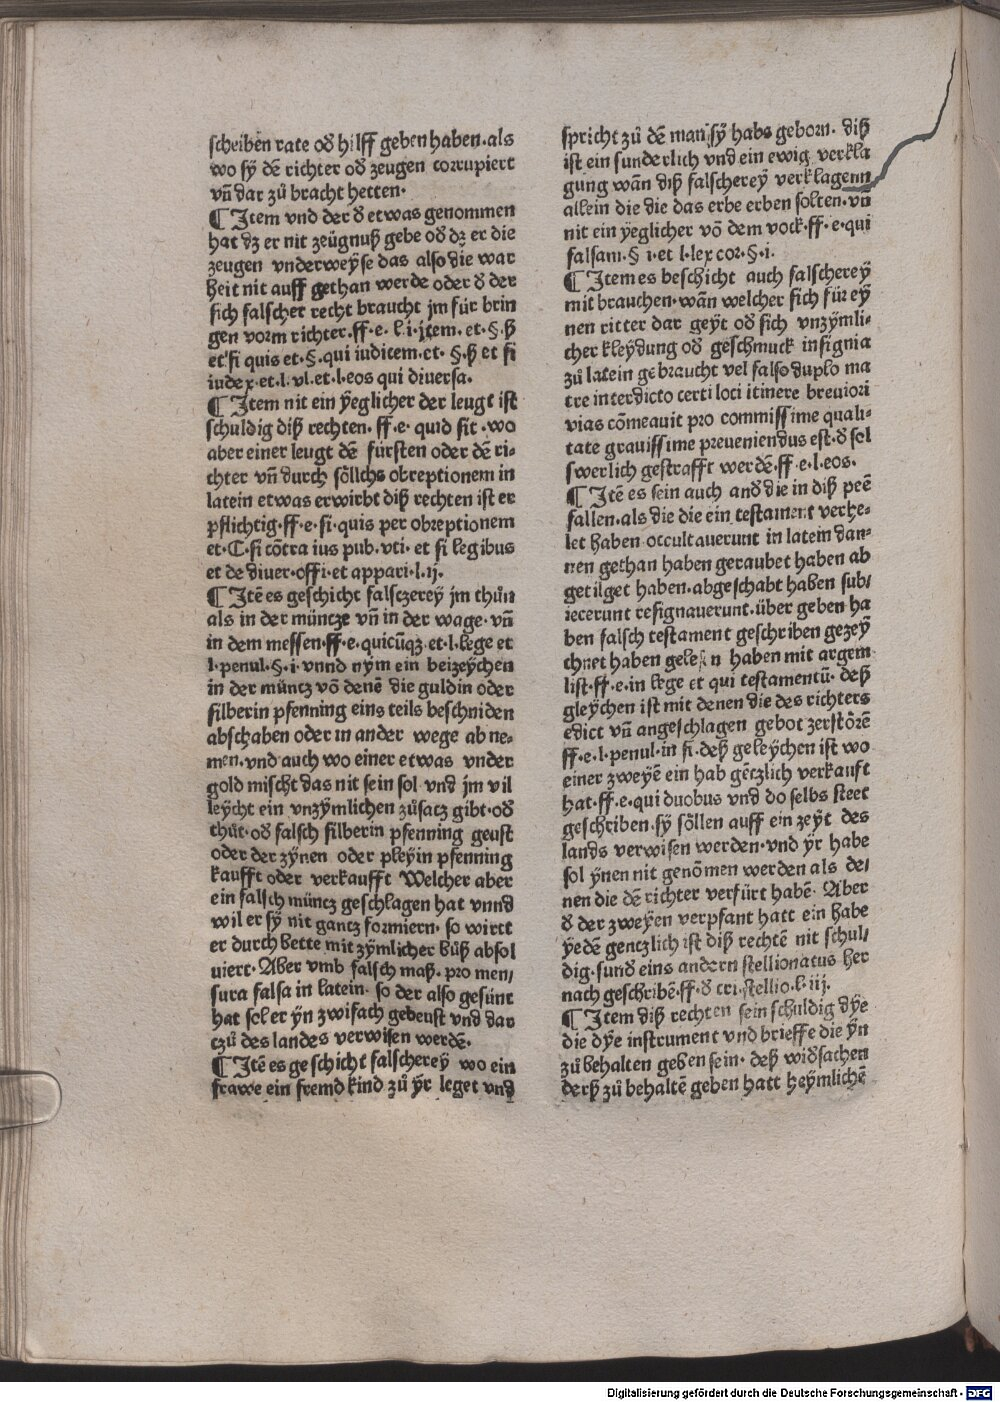 scheiben rate oď hilff geben haben·als
wo sÿ dē richter oď zeugen corrupiert
vñ dar zů bracht hetten·
¶ Jtem vnd der ď etwas genommen
hat dz er nit zeügnuß gebe oď dz er die
zeugen vnderweÿse das also die war
heit nit auff gethan werde oder ď der
sich falscher recht braucht jm für brin
gen vorm richter·ff·e· l·i·jtem·et·§·h̄
et si quis et·§·qui iudicem·et· §·h̄ et si
iudex·et·l·vl·et·l·eos qui diuersa·
¶ Jtem nit ein ÿeglicher der leugt ist
schuldig diß rechten· ff·e· quid sit·wo
aber einer leugt dē fürsten oder dē ri⸗
chter vñ durch söllchs obreptionem in
latein etwas erwirbt diß rechten ist er
pflichtig·ff·e·si·quis per obreptionem
et·C·si cōtra ius pub·vti· et si legibus
et de diuer·offi·et appari·l·ij·
¶ Jtē es geschicht falsczereÿ jm thůn
als in der müncze vñ in der wage·vñ
in dem messen·ff·e·quicūqz·et·l·lege et
l·penul·§·i·vnnd nÿm ein beizeÿchen
in der müncz vō denē die guldin oder
silberin pfenning eins teils beschniden
abschaben oder in ander wege ab ne⸗
men·vnd auch wo einer etwas vnder
gold mischt das nit sein sol vnd jm vil
leÿcht ein vnzÿmlichen zůsacz gibt·oď
thůt·oď falsch silberin pfenning geust
oder der zÿnen oder pleÿin pfenning
kaufft oder verkaufft Welcher aber
ein falsch müncz geschlagen hat vnnd
wil er sÿ nit gantz formiern· so wirtt
er durch bette mit zÿmlicher bůß absol
uiert·Aber vmb falsch maß·pro men⸗
sura falsa in latein· so der also gesünt
hat sol er ÿn zwifach gebeust vnd dar
czů des landes verwisen werdē·
¶ Jtē es geschicht falschereÿ wo ein
frawe ein fremd kind zů ÿr leget vnd
spricht zů dē man sÿ habs geborn· diß
ist ein sunderlich vnd ein ewig verkla
gung wān diß falschereÿ verklagenn
allein die die das erbe erben solten·vñ
nit ein ÿeglicher vō dem vock·ff·e·qui
falsam·§ i·et l·lex cor·§·i·
¶ Jtem es beschicht auch falschereÿ
mit brauchen·wān welcher sich für eÿ
nen ritter dar geÿt oď sich vnzÿmli⸗
cher kleÿdung oď geschmuck insignia
zů latein gebraucht vel falso duplo ma
tre interdicto certi loci itinere breuiori
vias cōmeauit pro commissime quali⸗
tate grauissime preueniendus est·ď sol
swerlich gestrafft werdē·ff·e·l·eos·
¶ Jtē es sein auch anď die in diß peē
fallen·als die die ein testament verhe⸗
let haben occultauerunt in latein dan⸗
nen gethan haben geraubet haben ab
getilget haben·abgeschabt haben sub⸗
iecerunt resignauerunt·über geben ha
ben falsch testament geschriben gezeÿ
chnet haben gelesen haben mit argem
list·ff·e·in lege et qui testamentū· deß
gleÿchen ist mit denen die des richters
edict vñ angeschlagen gebot zerstörē
ff·e·l·penul·in fi·deß geleÿchen ist wo
einer zweÿē ein hab gēczlich verkauft
hat·ff·e·qui duobus vnd do selbs steet
geschriben·sÿ söllen auff ein zeÿt des
lands verwisen werden·vnd ÿr habe
sol ÿnen nit genōmen werden als de⸗
nen die dē richter verfürt habē· Aber
ď der zweÿen verpfant hatt ein habe
ÿedē gentzlich ist diß rechtē nit schul⸗
dig·sunď eins andern stellionatus her
nach geschribē·ff·ď cri·stellio·l·iij·
¶ Jtem diß rechten sein schuldig dÿe
die dÿe instrument vnd brieffe die ÿn
zů behalten geben sein· deß widsachen
derß zů behaltē geben hatt heÿmlichē
Digitalisierung gefördert durch die Deutsche Forschungsgemeinschaft - DFG